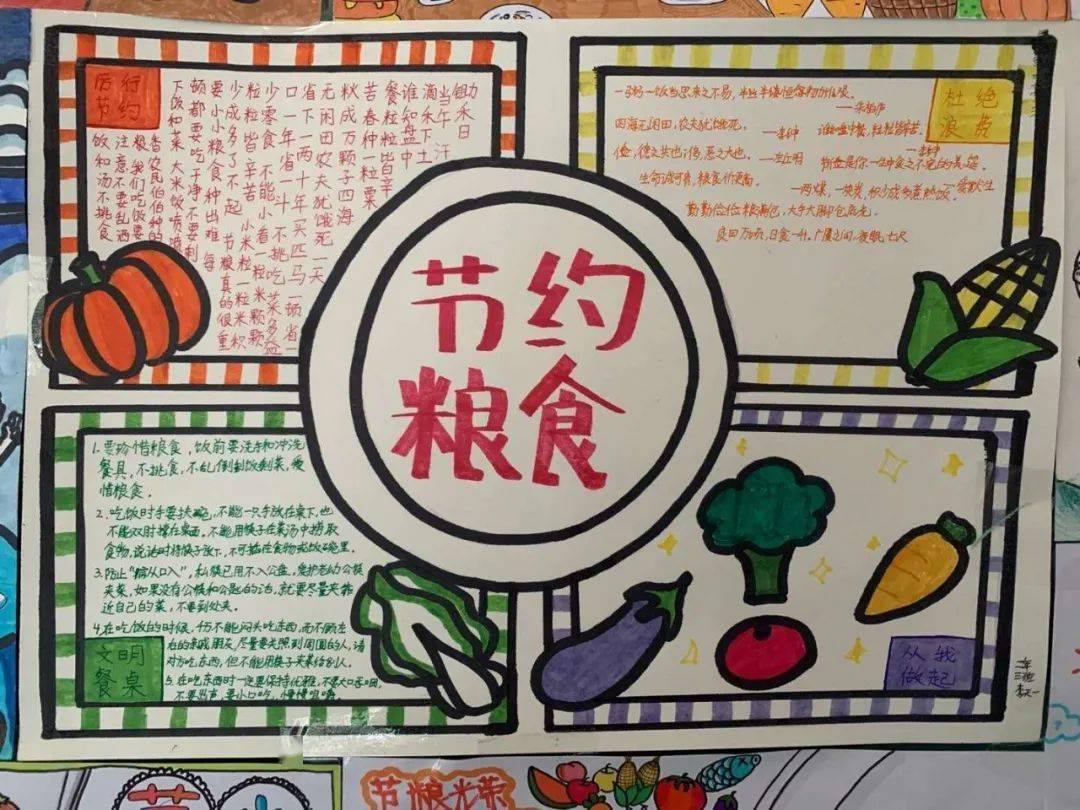 厉行
节约
助禾日
当午汗
滴禾下土
谁知盘中
餐粒粒皆辛
苦春种一粒粟
秋成万颗子四海
无闲田农夫犹饿死一天
省下一两十年买匹马一
口一年省一斗不挑吃菜多益
少零食不能小看一粒米颗颗
粒粒皆辛苦小米粒一粒米积
少成多了不起节粮真的很重
要小小粮食种出难每
顿都要吃干净不要剩
下饭和菜大米饭喷喷
香农民伯伯种的
粮我们吃饭要
注意不要乱洒
饭和汤不挑食
杜绝
浪费
一粥一饭当思来之不易，半丝半缕恒念物力维艰。
—朱柏庐
四海无闲田，农夫犹饿死。
—李绅
谁知盘中餐，粒粒皆辛苦。
—李绅
俭，德之共也；侈，恶之大也。—左丘明
节俭是你一生中食之不完的美筵。
—爱默生
生命诚可贵，粮食价更高。
一两煤，一块炭，积少成多煮熟饭。
勤勤俭俭粮满仓，大手大脚仓底光。
良田万顷，日食一升。广厦之间，夜眠七尺
节约
粮食
1.要珍惜粮食，饭前要洗手和冲洗
餐具，不挑食，不乱倒剩饭剩菜，爱
惜粮食。
2.吃饭时手要扶碗，不能一只手放在桌下，也
不能双肘撑在桌面。不能用筷子在菜汤中捞取
食物，说话时将筷子放下，不可插在食物或饭碗里。
3.防止“病从口入”，私筷已用不入公盘。爱护老幼公筷
夹菜，如果没有公筷和公匙的话，就要尽量夹靠
近自己的菜，不要到处夹。
4.在吃饭的时候，千万不能闷头吃东西，而不顾左
右的亲戚朋友，尽量要关照到周围的人，请
对方吃东西，但不能用筷子夹菜给别人。
5.在吃东西时一定要保持优雅，不要大口吞咽，
不要出声，要小口吃，慢慢咀嚼
文明
餐桌
从我
做起
节粮光荣